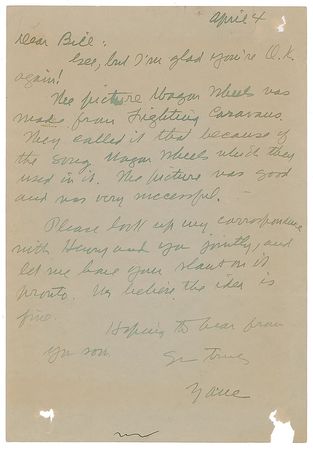 April 4
Dear Bill:
Gee, but I'm glad you're O.K.
again!
The picture Wagon Wheels was
made from Fighting Caravans.
They called it that because of
the song Wagon Wheels which they
used in it. The picture was good
and was very successful.
Please look up my correspondence
with Henry and you jointly, and
let me have your slant on it
pronto. We believe the idea is
fine.
Hoping to hear from
you soon.
Zane